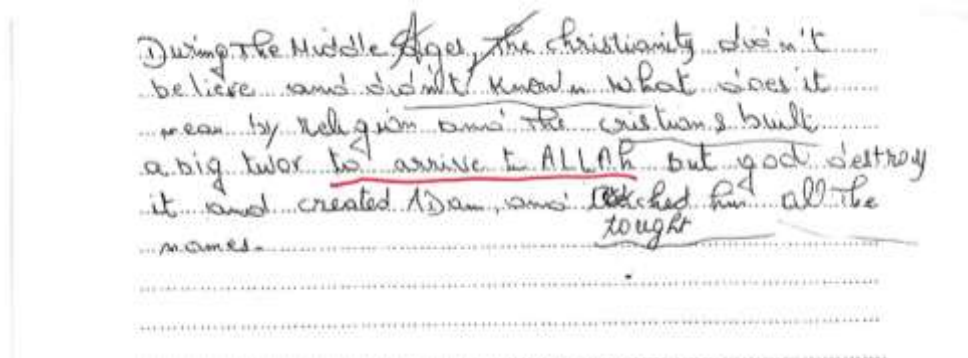 During The Middle Ages, the christianity didn't
believe and didn't known what does it
mean by religion and the cristians built
a big twor to arrive to ALLAh but god destroy
it and created ADam, and him all the
tought
names.